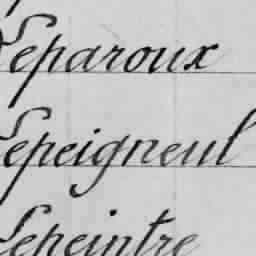 Leparoux
Lepeigneul
Lepeintre